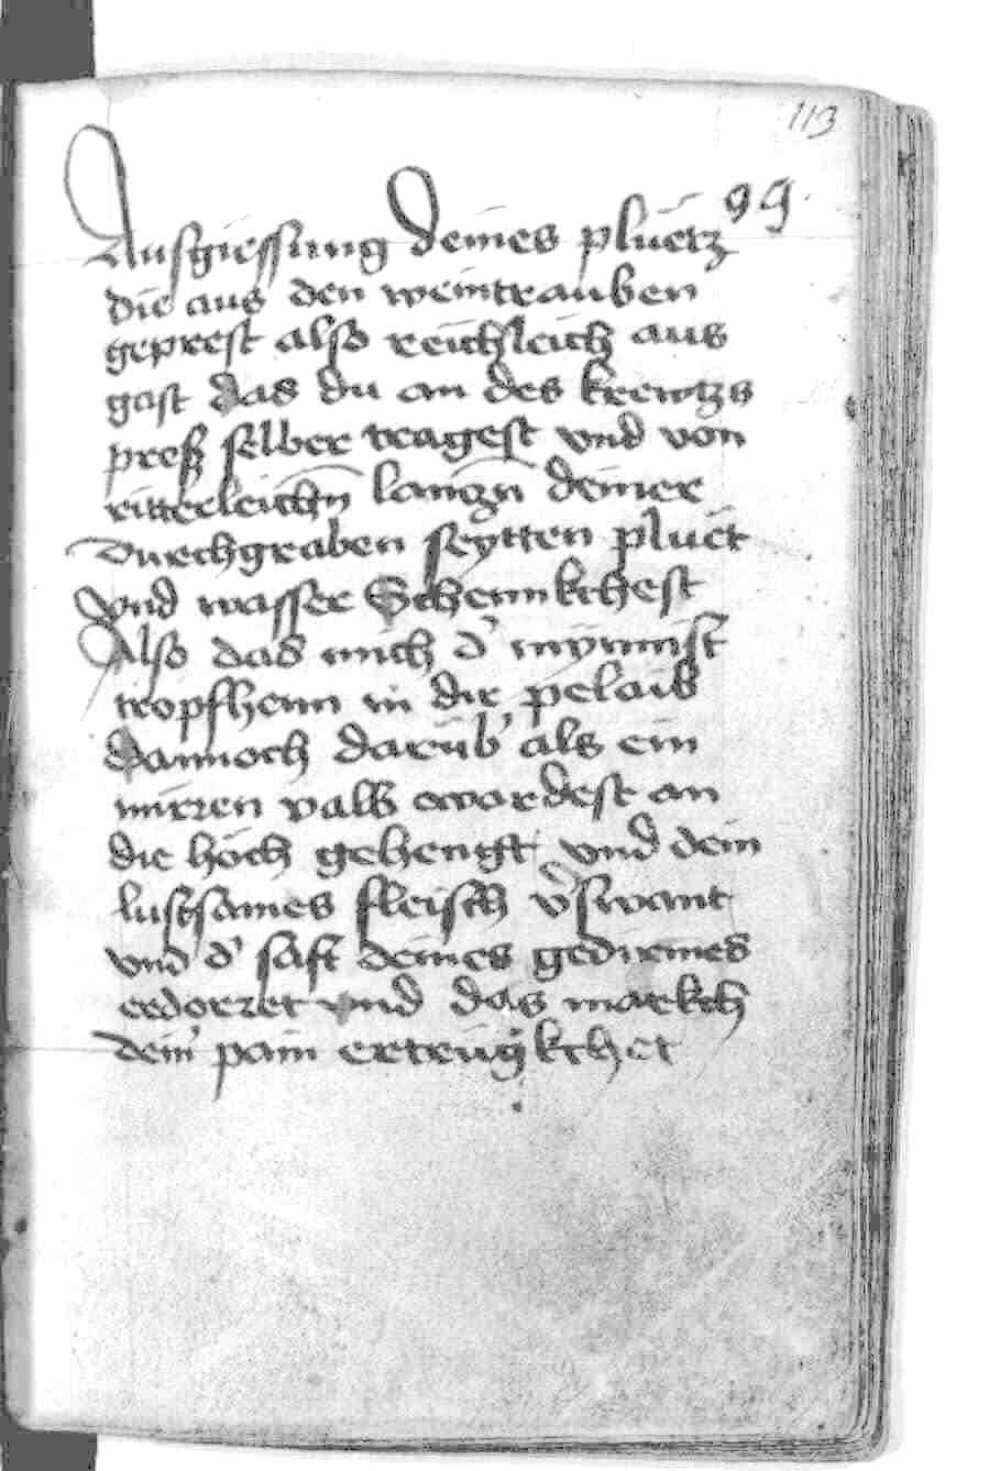 113
99
Ausgiessung deines pluetz
die aus den weintrauben
geprest also reichleich aus
gast das du an des krewtzs
preß selber tragest vnd von
ritterleichn lanngn deiner
durchgraben seytten pluet
vnd wasser Schennkchest
Also das mich d' mynnist
tropfhenn in dir pelaib
dannoch darüb' als ein
mirren valb wardest an
die höch gehengt vnd dein
lustsames fleisch v'swant
vnd d' saft deines gedirmes
erdorret vnd das markch
dein' pain ertrügkchet